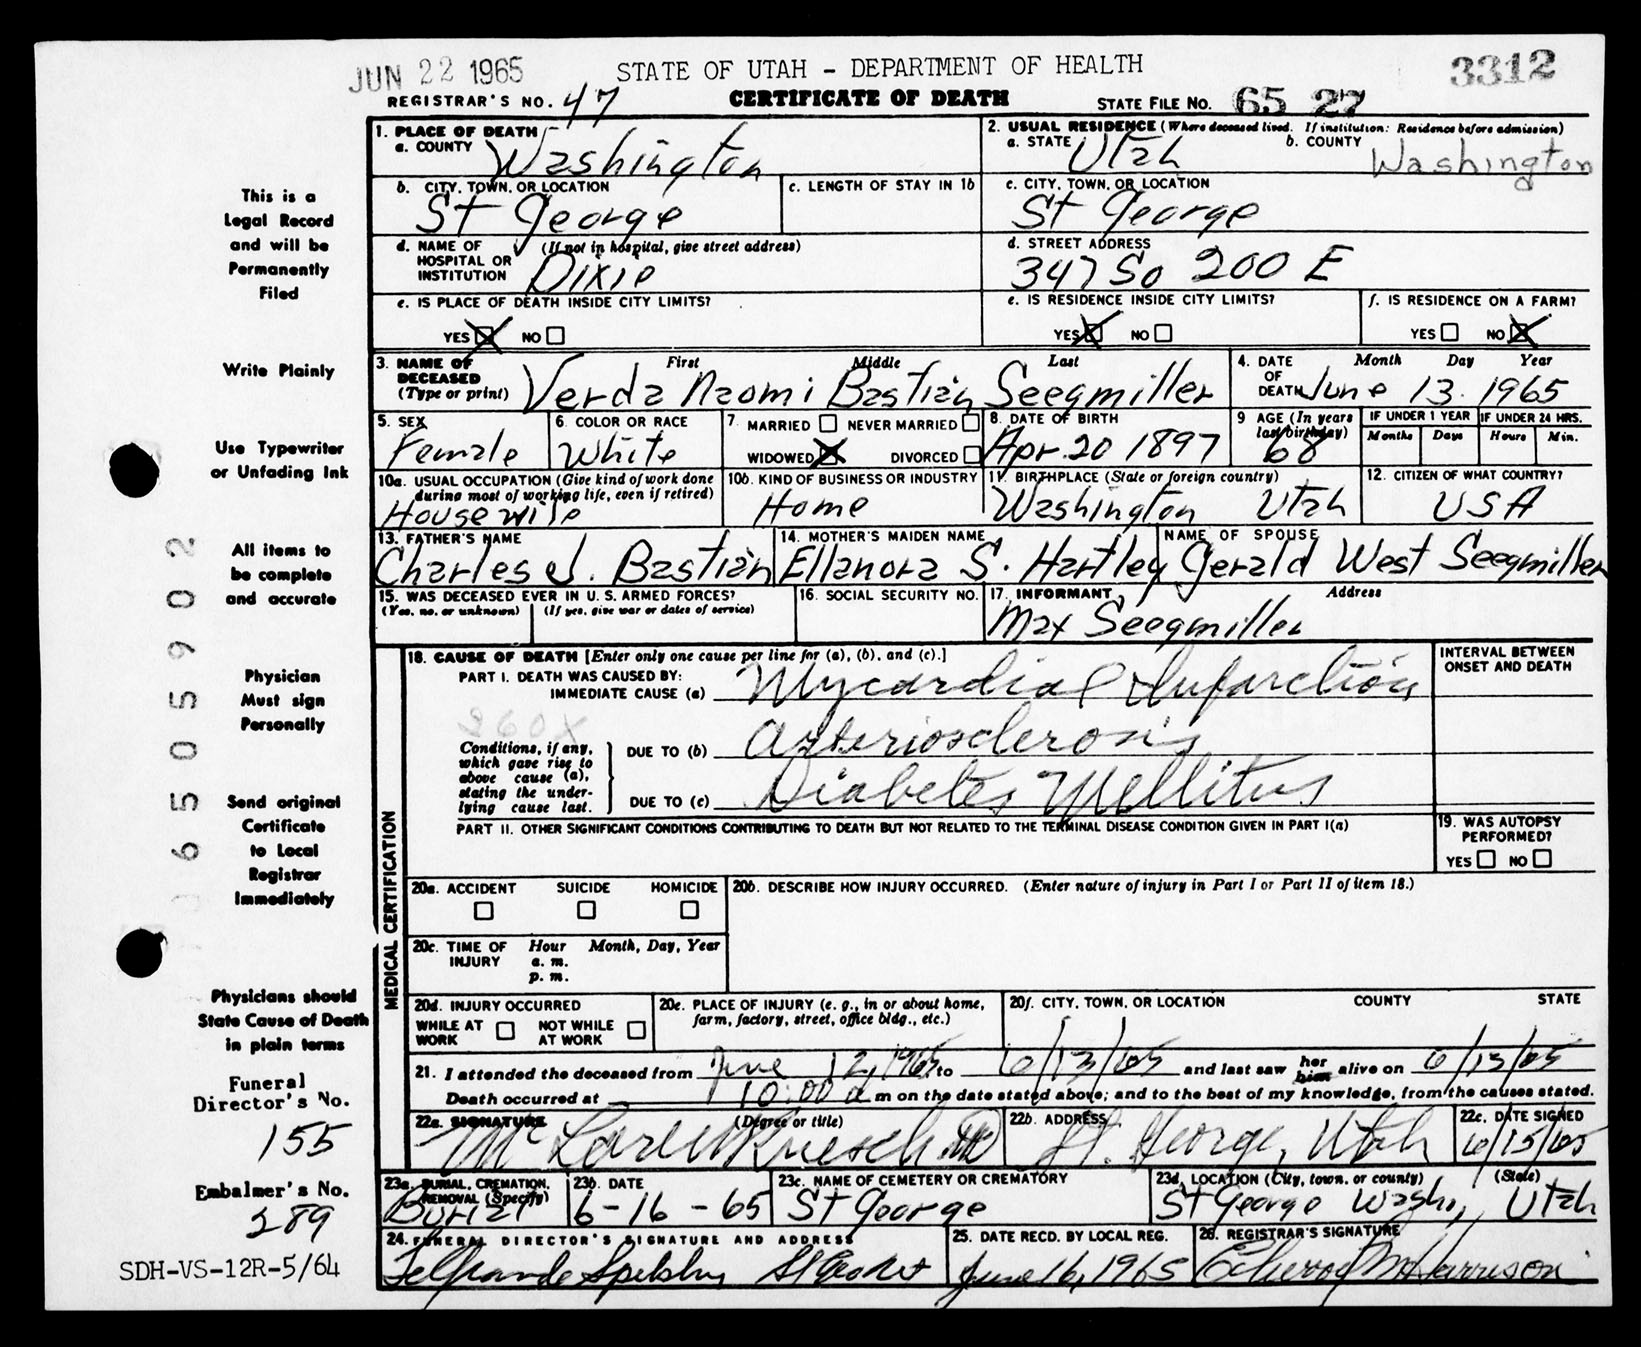 JUN 22 1965
STATE OF UTAH – DEPARTMENT OF HEALTH
3312
REGISTRAR'S NO. 47
CERTIFICATE OF DEATH
STATE FILE NO. 65 27
1. PLACE OF DEATH
a. COUNTY Washington
2. USUAL RESIDENCE (Where deceased lived. If institution: Residence before admission)
a. STATE Utah
b. COUNTY Washington
b. CITY, TOWN, OR LOCATION
St George
c. LENGTH OF STAY IN 1b
c. CITY, TOWN, OR LOCATION
St George
d. NAME OF HOSPITAL OR INSTITUTION (If not in hospital, give street address)
Dixie
d. STREET ADDRESS
347 So 200 E
e. IS PLACE OF DEATH INSIDE CITY LIMITS?
YES X NO
e. IS RESIDENCE INSIDE CITY LIMITS?
YES X NO
f. IS RESIDENCE ON A FARM?
YES NO X
3. NAME OF DECEASED (Type or print)
First Middle Last
Verda Naomi Bastian Seegmiller
4. DATE OF DEATH
Month Day Year
June 13. 1965
5. SEX
Female
6. COLOR OR RACE
White
7. MARRIED NEVER MARRIED
WIDOWED X DIVORCED
8. DATE OF BIRTH
Apr. 20 1897
9 AGE (In years last birthday)
68
IF UNDER 1 YEAR
Months Days
IF UNDER 24 HRS.
Hours Min.
10a. USUAL OCCUPATION (Give kind of work done during most of working life, even if retired)
Housewife
10b. KIND OF BUSINESS OR INDUSTRY
Home
11. BIRTHPLACE (State or foreign country)
Washington Utah
12. CITIZEN OF WHAT COUNTRY?
USA
13. FATHER'S NAME
Charles J. Bastian
14. MOTHER'S MAIDEN NAME
Ellanora S. Hartley
NAME OF SPOUSE
Gerald West Seegmiller
15. WAS DECEASED EVER IN U.S. ARMED FORCES?
(Yes, no, or unknown) (If yes, give war or dates of service)
16. SOCIAL SECURITY NO.
17. INFORMANT Address
Max Seegmiller
MEDICAL CERTIFICATION
18. CAUSE OF DEATH [Enter only one cause per line for (a), (b), and (c).]
PART I. DEATH WAS CAUSED BY:
IMMEDIATE CAUSE (a) Mycardial Infarction
260X
Conditions, if any, which gave rise to above cause (a), stating the underlying cause last.
DUE TO (b) Arteriosclerosis
DUE TO (c) Diabetes Mellitus
INTERVAL BETWEEN ONSET AND DEATH
PART II. OTHER SIGNIFICANT CONDITIONS CONTRIBUTING TO DEATH BUT NOT RELATED TO THE TERMINAL DISEASE CONDITION GIVEN IN PART I(a)
19. WAS AUTOPSY PERFORMED?
YES NO
20a. ACCIDENT SUICIDE HOMICIDE
20b. DESCRIBE HOW INJURY OCCURRED. (Enter nature of injury in Part I or Part II of item 18.)
20c. TIME OF INJURY
Hour Month, Day, Year
a. m.
p. m.
20d. INJURY OCCURRED
WHILE AT WORK NOT WHILE AT WORK
20e. PLACE OF INJURY (e. g., in or about home, farm, factory, street, office bldg., etc.)
20f. CITY, TOWN, OR LOCATION COUNTY STATE
21. I attended the deceased from June 12, 1965 to 6/13/65 and last saw her him alive on 6/13/65
Death occurred at 10:00 a m on the date stated above; and to the best of my knowledge, from the causes stated.
22a. SIGNATURE (Degree or title)
22b. ADDRESS
St. George, Utah
22c. DATE SIGNED
6/15/65
23a. BURIAL, CREMATION, REMOVAL (Specify)
Burial
23b. DATE
6-16-65
23c. NAME OF CEMETERY OR CREMATORY
St George
23d. LOCATION (City, town, or county) (State)
St George Wash., Utah
24. FUNERAL DIRECTOR'S SIGNATURE AND ADDRESS
25. DATE RECD. BY LOCAL REG.
June 16, 1965
26. REGISTRAR'S SIGNATURE
This is a
Legal Record
and will be
Permanently
Filed
Write Plainly
Use Typewriter
or Unfading Ink
All items to
be complete
and accurate
Physician
Must sign
Personally
Send original
Certificate
to Local
Registrar
Immediately
Physicians should
State Cause of Death
in plain terms
Funeral
Director's No.
155
Embalmer's No.
289
SDH-VS-12R-5/64